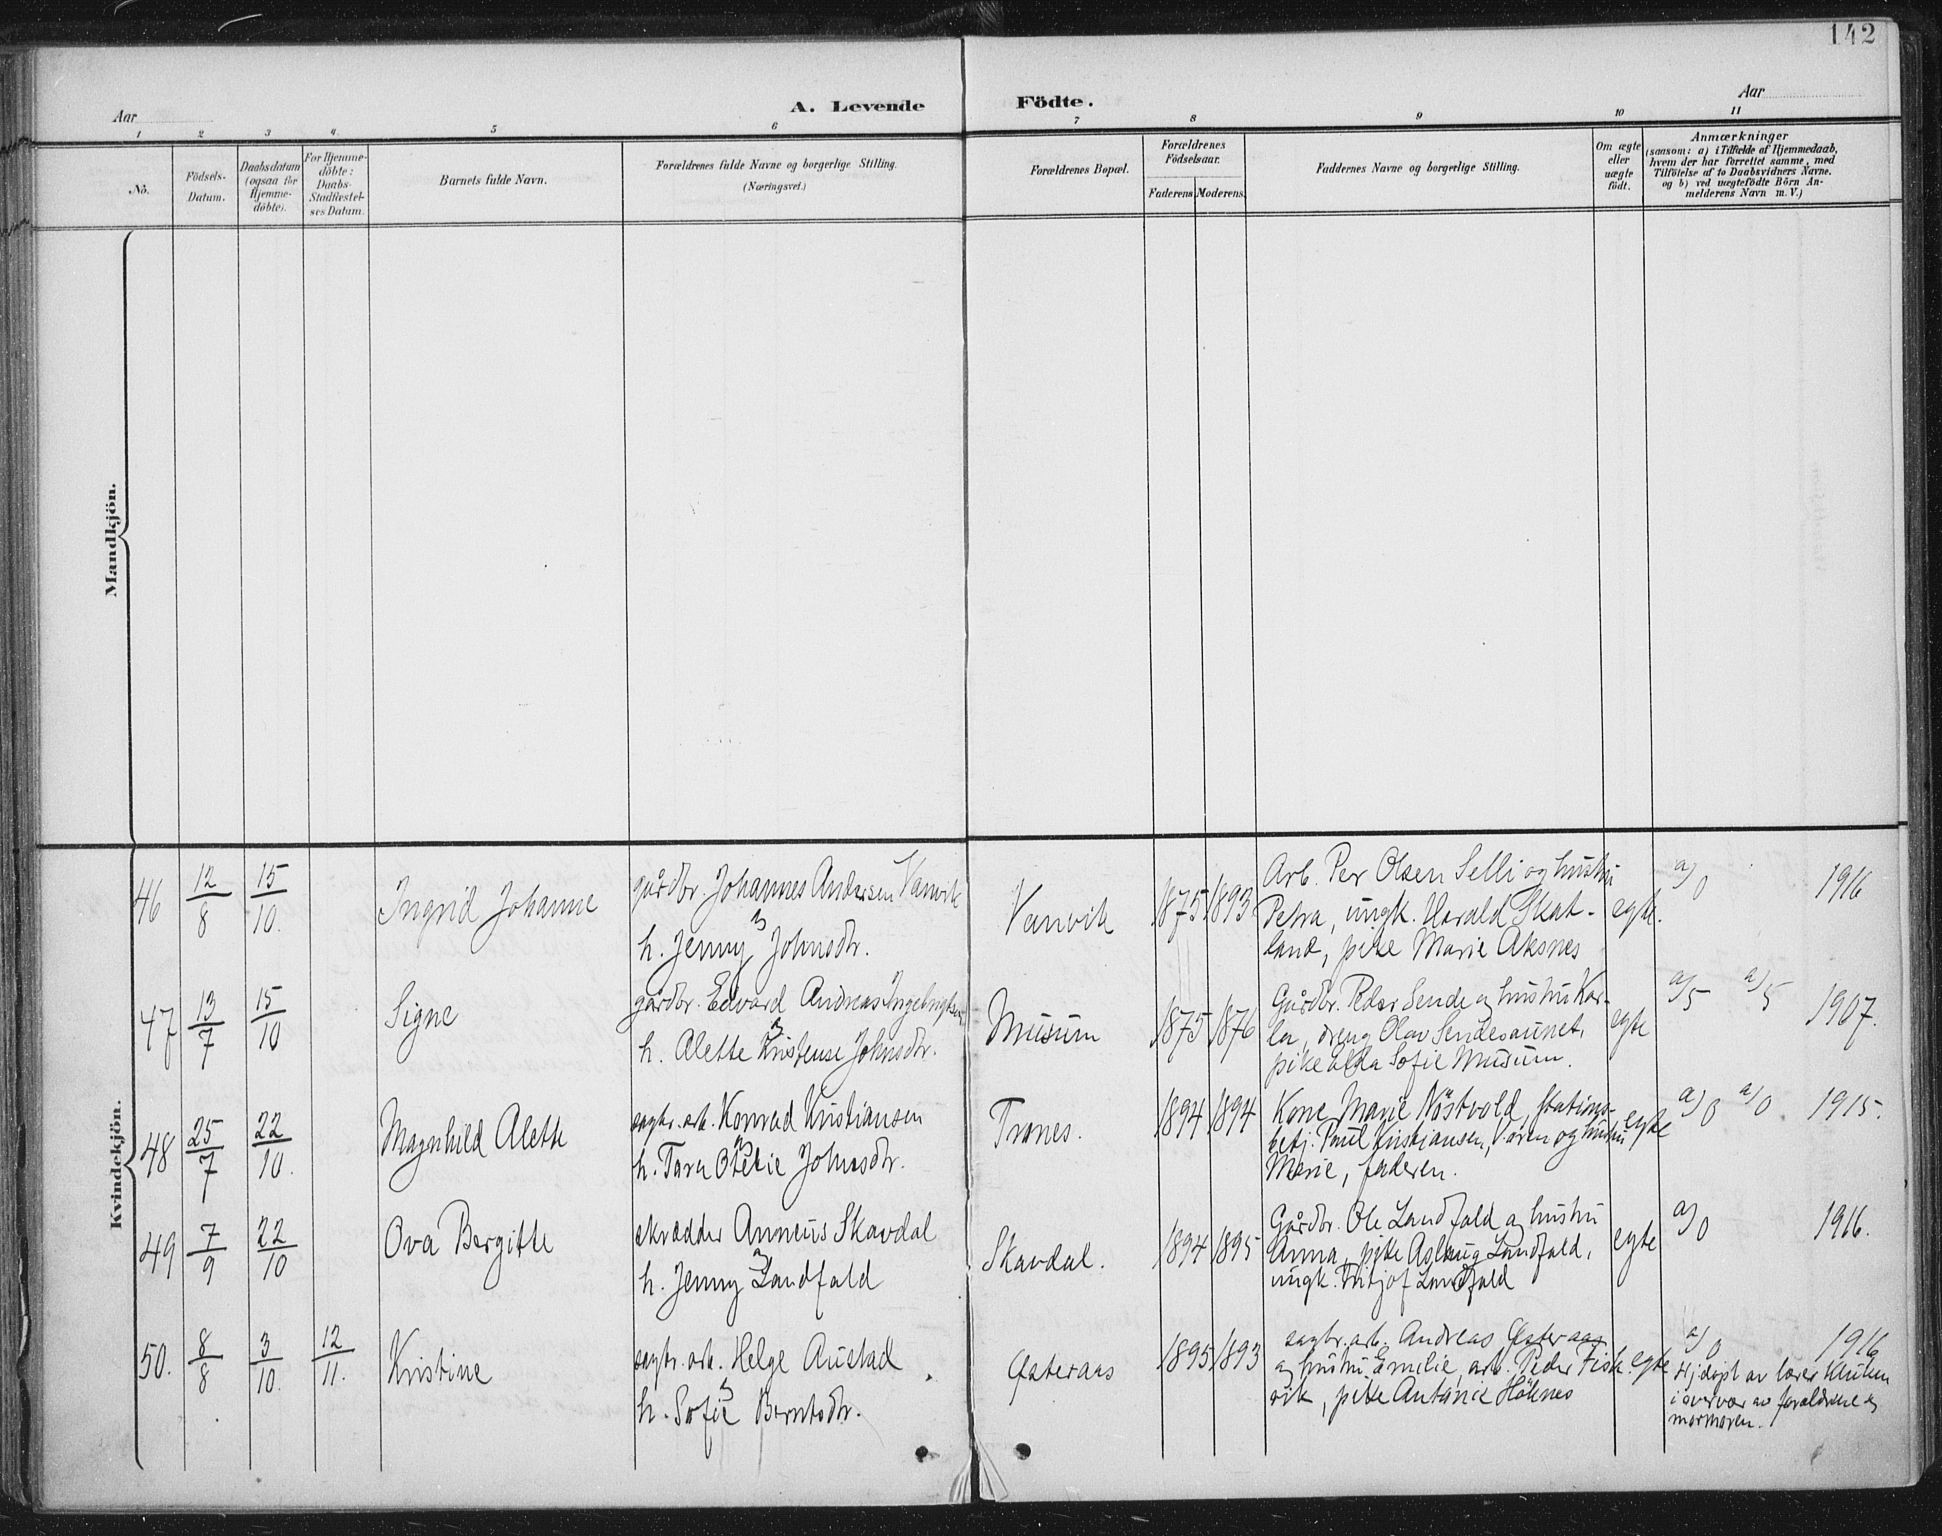 142
Aar
A. Levende Födte.
Aar
1 2 3 4 5 6 7 8 9 10 11
No.
Födsels-
Datum.
Daabsdatum
(ogsaa for
Hjemme-
döbte).
For Hjemme-
döbte:
Daabs-
Stadfæstel-
ses Datum.
Barnets fulde Navn.
Forældrenes fulde Navne og borgerlige Stilling.
(Næringsvei.)
Forældrenes Bopæl.
Forældrenes
Födselsaar.
Faderens Moderens.
Faddernes Navne og borgerlige Stilling.
Om ægte
eller
uægte
födt.
Anmærkninger
(saasom: a) i Tilfælde af Hjemmedaab,
hvem der har forrettet samme, med
Tilföielse af to Daabsvidners Navne.
og b) ved uægtefödte Börn An-
melderens Navn m. V.)
Mandkjön.
Kvindekjön.
46
12/8
15/10.
Ingrid Johanne
gårdbr. Johannes Andersen Vanvik
h. Jenny Johnsdtr.
Vanvik
1875 1893
Arb. Per Olsen Selli og hustru
Petra, ungk. Harald Skat-
land, pike Marie Aksnes
egte.
a/0
1916
47
13/7
15/10
Signe
gårdbr. Edvard Andreas Ingebrigtsen
h. Alette Kristense Johnsdtr.
Musum
1875 1876
Gårdbr. Peder Sende og hustru Kar-
la, dreng Olav Sendesaunet,
pike Alda Sofie Musum.
egte
a/5 a/5
1907.
48
25/7
22/10.
Magnhild Alette
sagbr. arb. Konrad Kristiansen
h. Tara Otelie Johnsdtr.
Tranes.
1894 1894
Kone Marie Nöstvold, stations-
betj. Paul Kristiansen, Vären og hustru
Marie, faderen.
egte
a/0 a/0
1915.
49
7/9
22/10
Ova Bergitte
skrædder Anneus Skavdal
h. Jenny Landfald
Skavdal.
1894 1895
Gårdbr. Ole Landfald og hustru
Anna, pike Aslaug Landfald,
ungk. Fritjof Landfald
egte
a/0
1916.
50.
8/8
3/10.
12/11.
Kristine
sagbr. arb. Helge Austad
h. Sofie Berntsdtr.
Østeraas
1895 1893
sagbr. arb. Andreas Østeraas
og hustru Emilie, arb. Peder Fisk-
vik, pike Antonie Höknes
egte
a/0
1916
Hj.døpt av lærer Kluken
i overvær av forældrene og
mormoren.